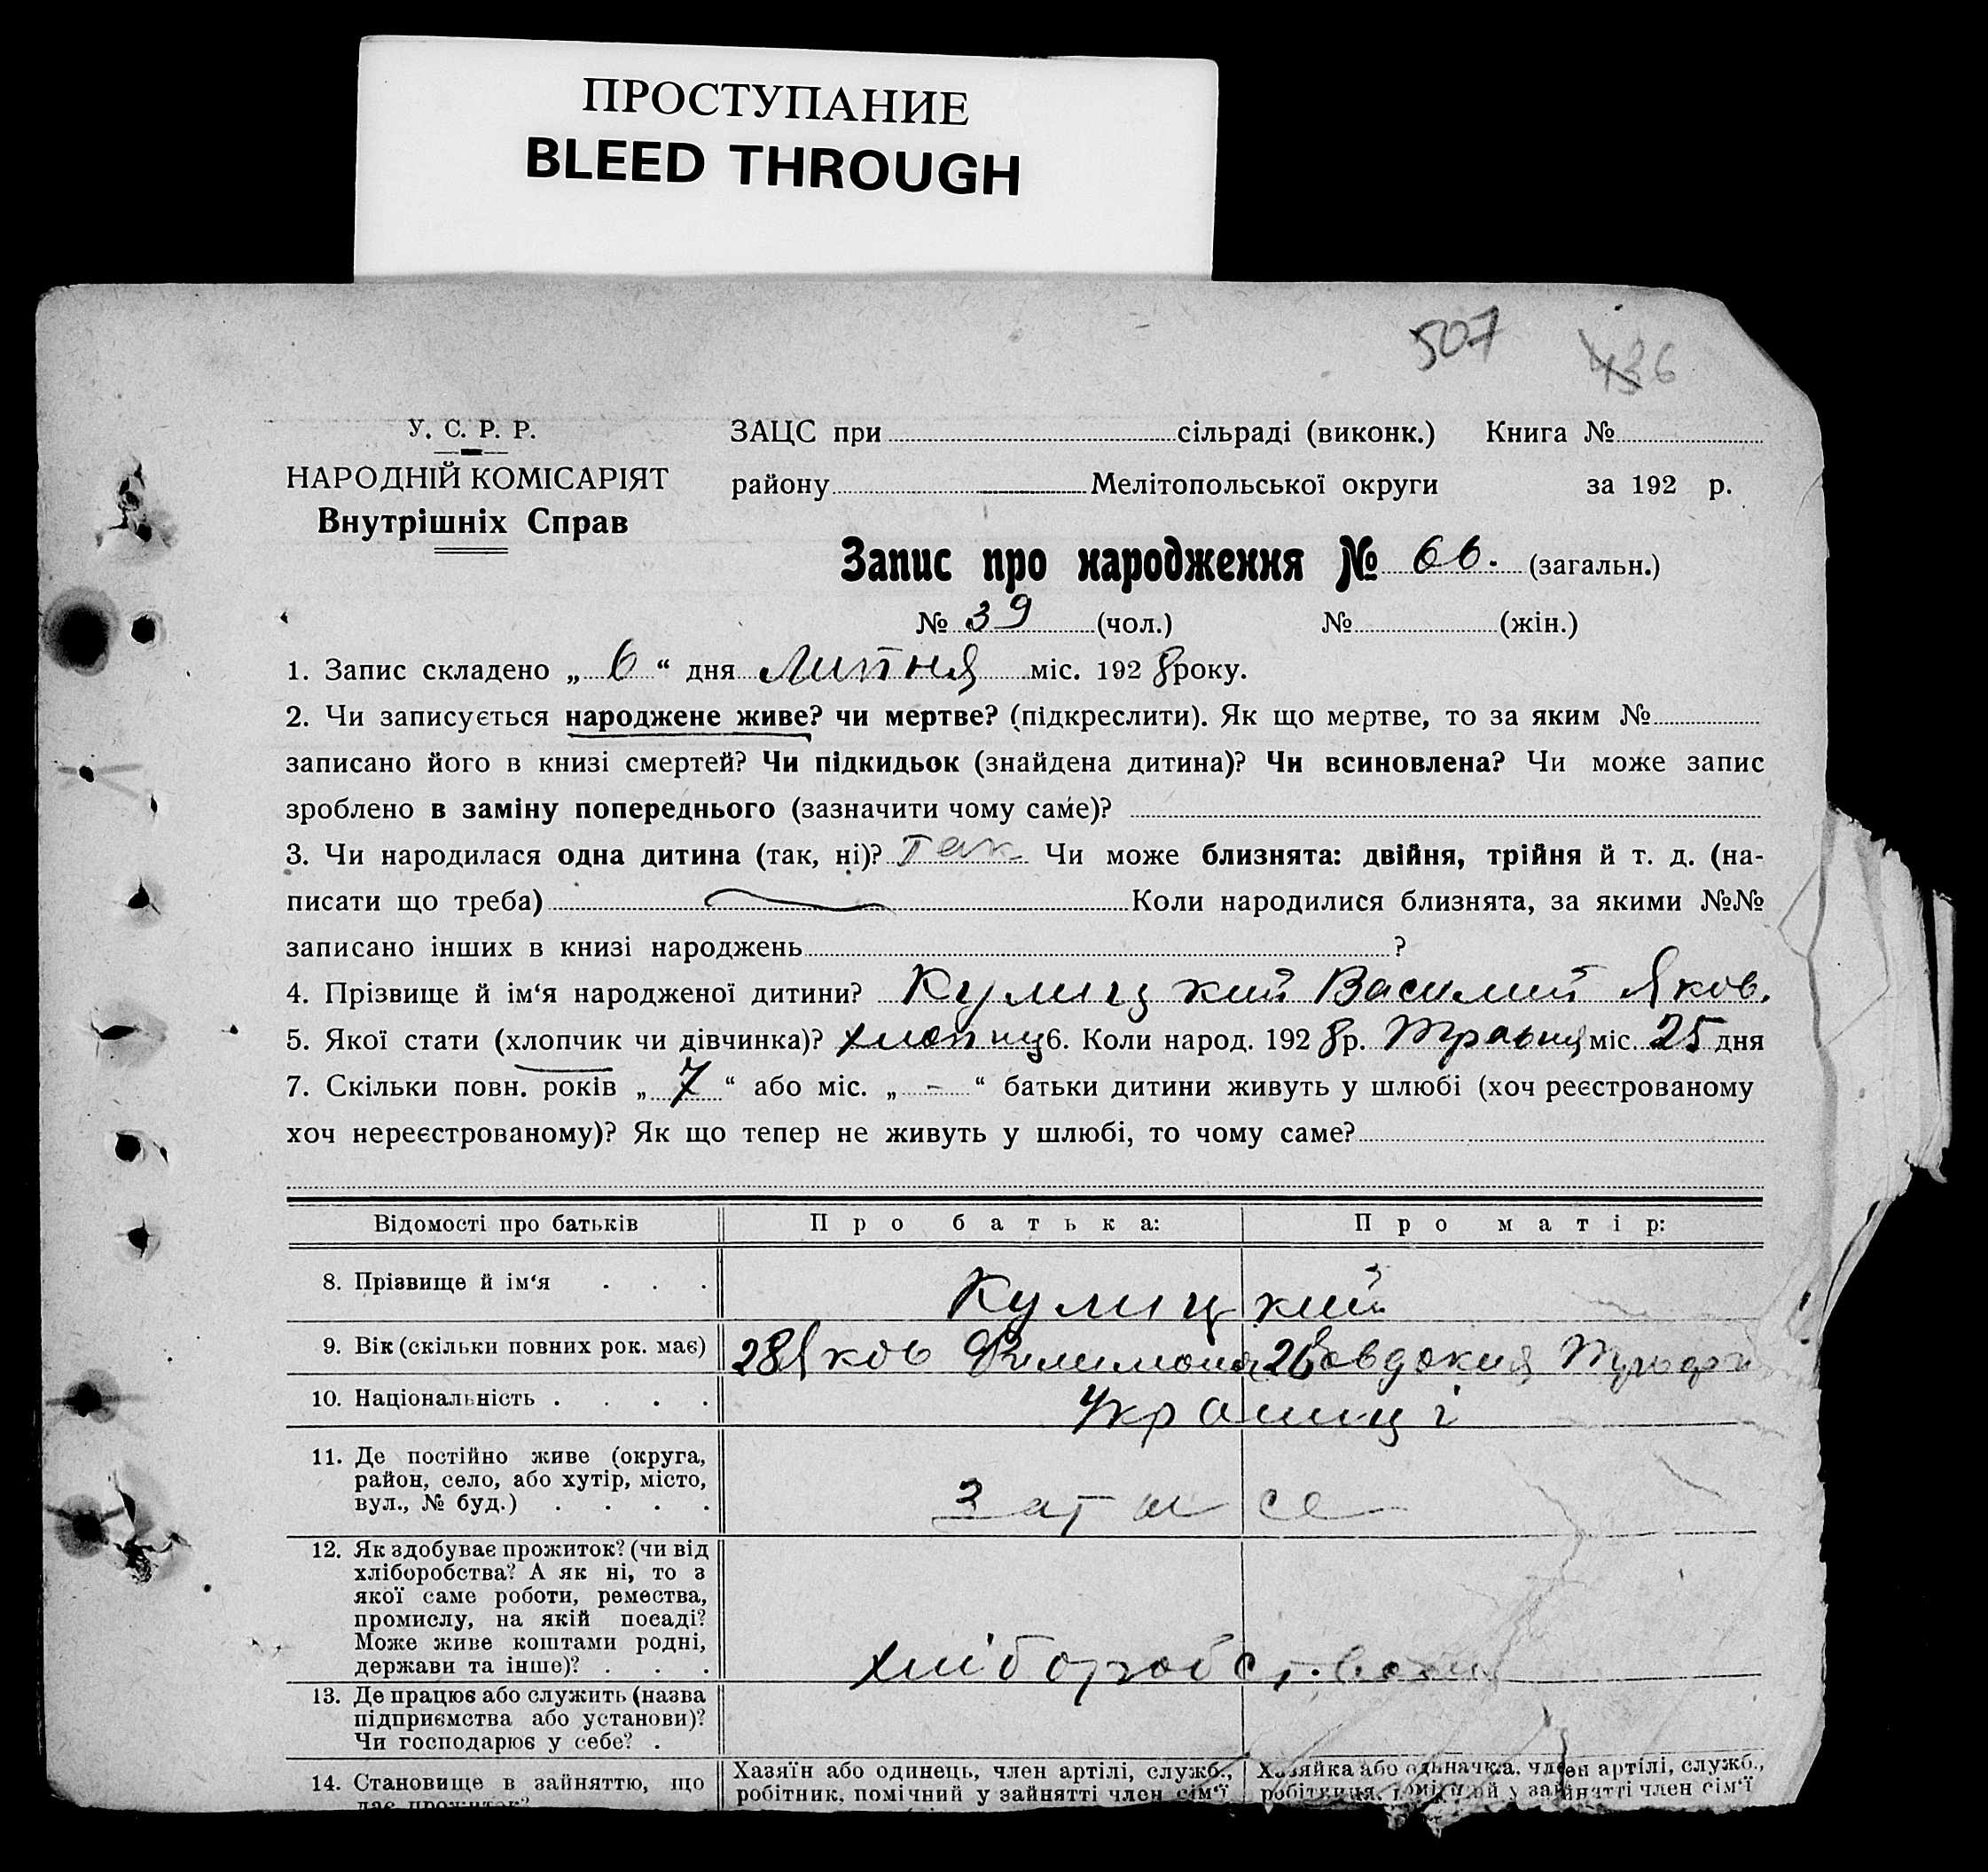 ПРОСТУПАНИЕ
BLEED THROUGH
507 436
У. С. Р. Р.
НАРОДНІЙ КОМІСАРІЯТ
Внутрішніх Справ
ЗАЦС при сільраді (виконк.) Книга №
району Мелітопольської округи за 192 р.
Запис про народження № 66. (загальн.)
№ 39 (чол.) № (жін.)
1. Запис складено „ 6 “ дня Липня міс. 192 8 року.
2. Чи записується народжене живе? чи мертве? (підкреслити). Як що мертве, то за яким №
записано його в книзі смертей? Чи підкидьок (знайдена дитина)? Чи всиновлена? Чи може запис
зроблено в заміну попереднього (зазначити чому саме)?
3. Чи народилася одна дитина (так, ні)? Так Чи може близнята: двійня, трійня й т. д. (на-
писати що треба) Коли народилися близнята, за якими №№
записано інших в книзі народжень ?
4. Прізвище й ім‘я народженої дитини? Кулицкий Василий Яков.
5. Якої стати (хлопчик чи дівчинка)? 6. Коли народ. 192 8 р. Травня міс. 25 дня
7. Скільки повн. років „ 7 “ або міс. „ - “ батьки дитини живуть у шлюбі (хоч реєстрованому
хоч нереєстрованому)? Як що тепер не живуть у шлюбі, то чому саме?
Відомості про батьків Про батька: Про матір:
8. Прізвище й ім‘я . . . Кулицкий
9. Вік (скільки повних рок. має) 28 Яков Филимон 26 Овдокия
10. Національність . . . . Украинці
11. Де постійно живе (округа,
район, село, або хутір, місто,
вул., № буд.) . . . .
12. Як здобуває прожиток? (чи від
хліборобства? А як ні, то з
якої саме роботи, ремества,
промислу, на якій посаді?
Може живе коштами родні,
держави та інше)? . . .
13. Де працює або служить (назва
підприємства або установи)?
Чи господарює у себе? .
14. Становище в зайняттю, що
дає прожиток?
Хазяїн або одинець, член артілі, служб.,
робітник, помічний у зайнятті член сім‘ї
Хазяйка або одиначка, член артілі, служб.,
робітниця, помічний у зайнятті член сім‘ї